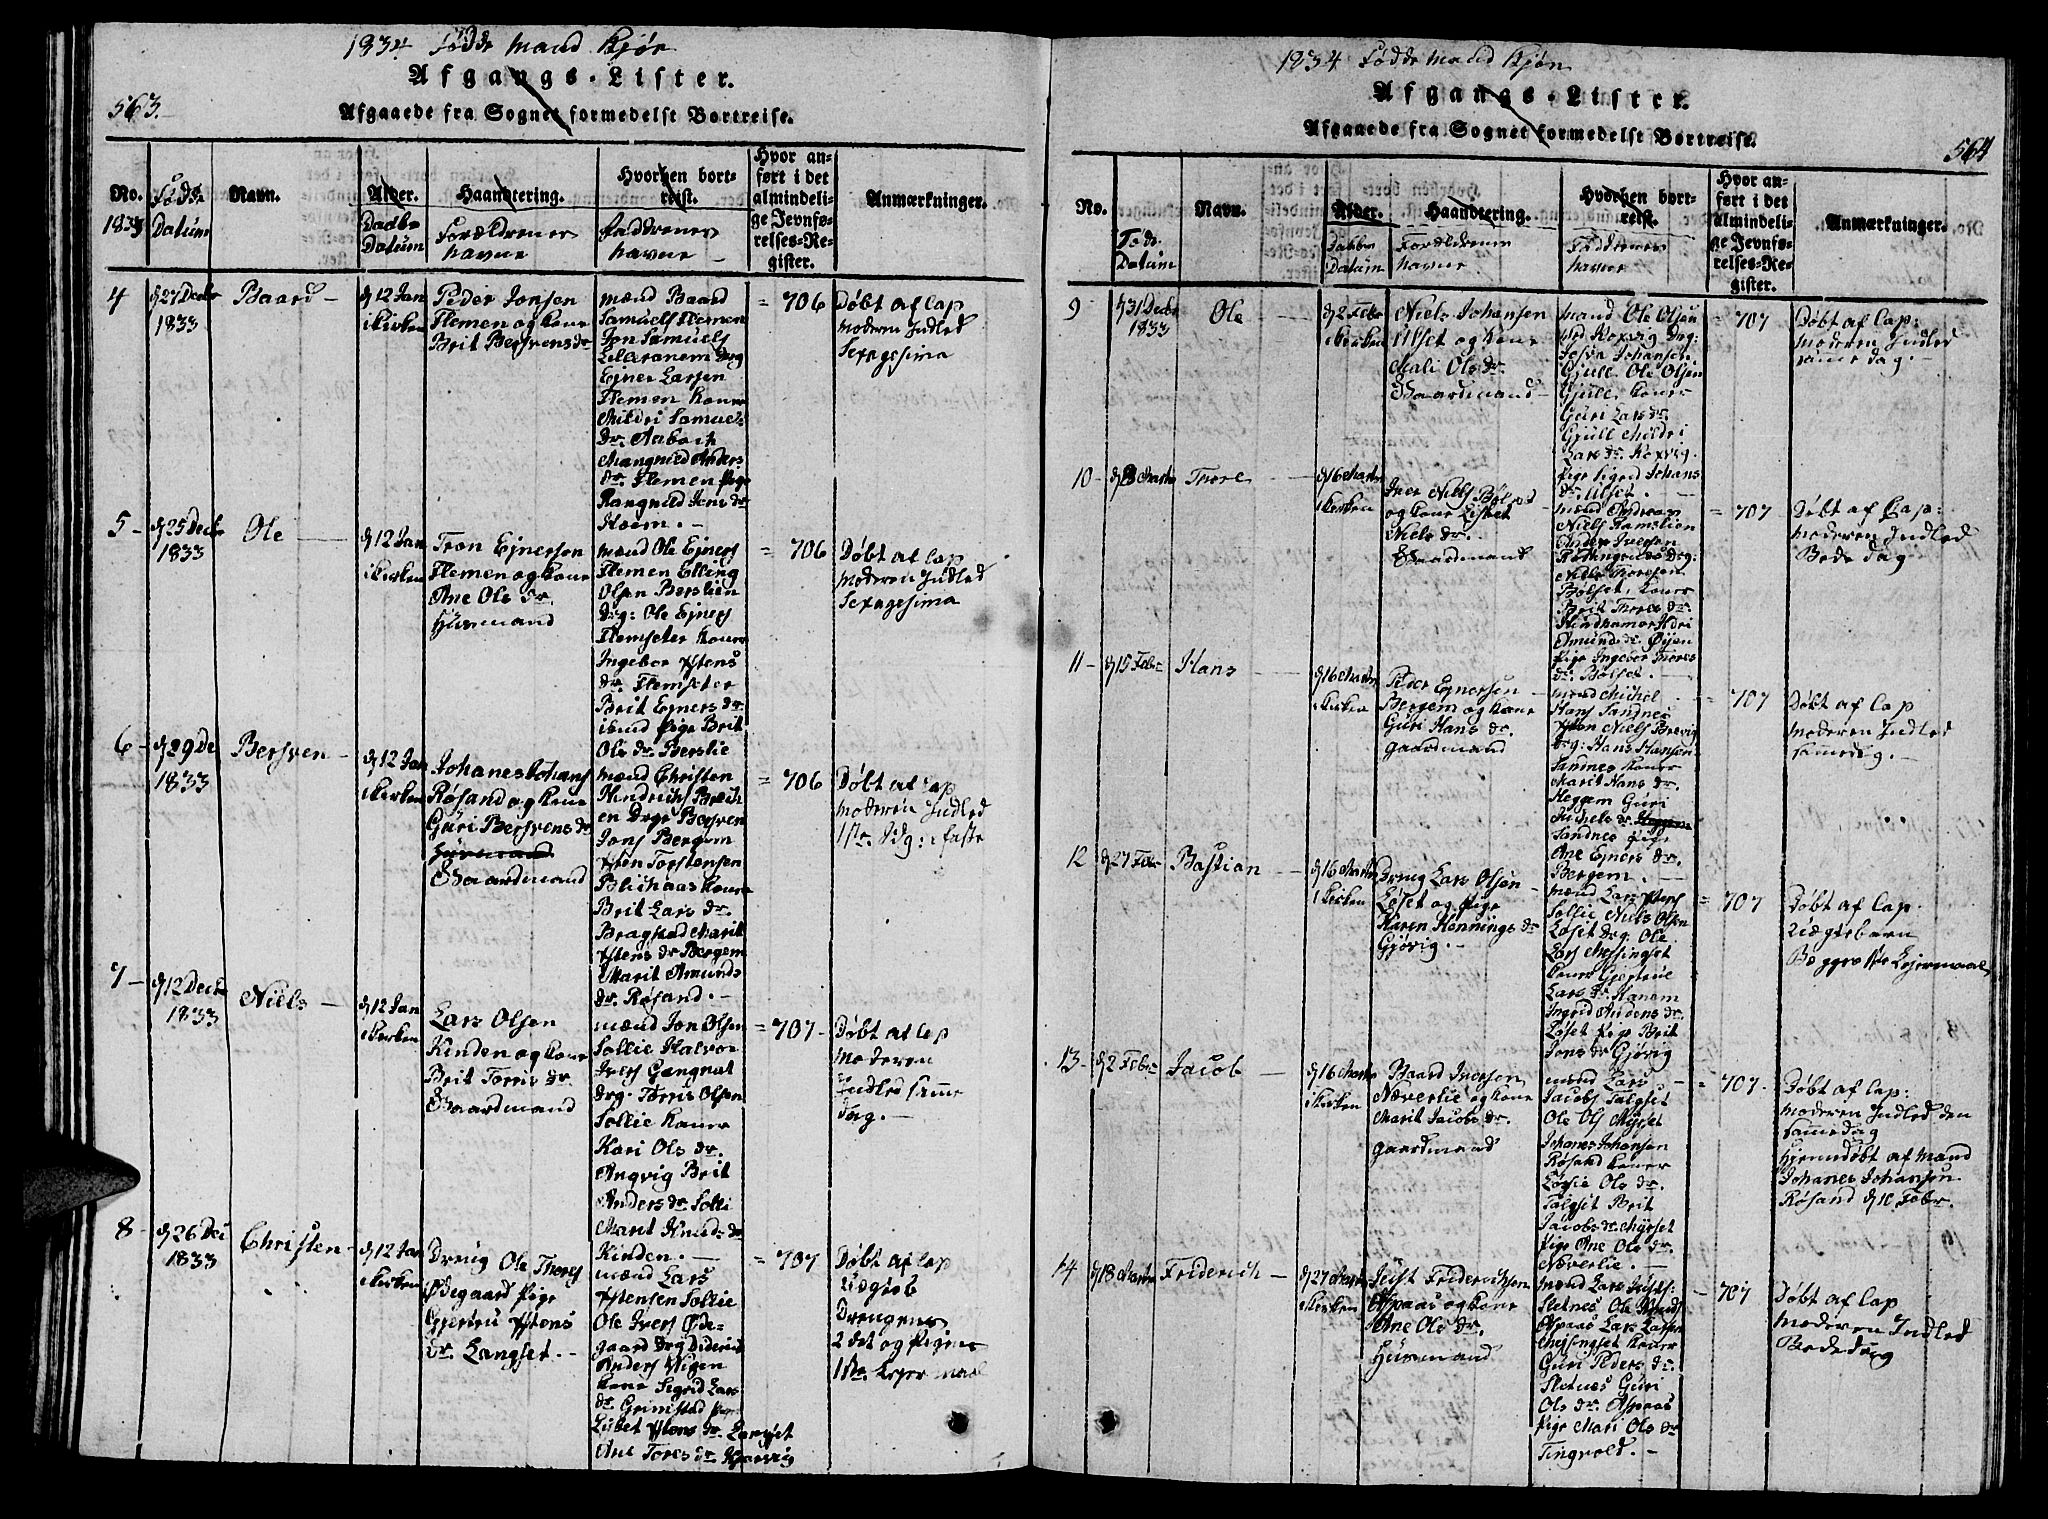 1834 Fødde Mand Kjøn
Afgangs-Lister.
563.
Afgaaede fra Sognet formedelst Bortreise.
No. 1833
Fødde Datum
Navn.
Alder.
Daabs Datum
Haandtering.
Forældrenes Navne
Hvorhen bortreist.
Faddrenes Navne
Hvor anført i det almindelige Jevnførelses-Register.
Anmærkninger.
4
d 27 Decbr
1833
Baard
d 12 Jan
i Kirken
Peder Jonsen
Flemen og Kone
Brit Bersvensdr
mænd Baard
Samuels Flemen
Jon Samuels
Ejner Larsen
Flemen Koner
Mildri Samuels
dr. Aabach
Magnild Anders
dr. Flemen Pige
Rangnild Jens dr
Hoem.
= 706
Døbt af Cap
Moderen Indled
Sexagesima
5
d 25 Decbr
1833
Ole
d 12 Jan
i Kirken
Tron Ejnersen
Flemen og Kone
Ane Ols dr.
Husmand
mænd Ole Ejners
Flemen Elling
Olsen Berslien
drg: Ole Ejners
Flemseter Koner
Ingebor Ystens
dr. Flemseter
Brit Ejners dr.
ibind Pige Brit
Ols dr. Berslie
= 706
Døbt af Cap
Moderen Indled
Sexagesima
6
d 29 De
1833
Bersven
d 12 Jan
i Kirken
Johanes Johans
Røsand og Kone
Guri Bersvens dr
Husmand
Gaardmand
mænd Christen
Hindrichs Breich
en Drge Bersven
Jons Bergem
Ysten Torstensen
Blichaas Koner
Brit Lars dr.
Bragstad Marit
Ystens dr Bergem
Marit Amunds
dr. Røsand.
= 706
Døbt af Cap
Moderen Indled
1ste Sdg: i faste
7
d 12 Decbr
1833
Niels
d 12 Jan
i Kirken
Lars Olsen
Kinden og Kone
Brit Torris dr.
Gaardmand
mænd Jon Olsen
Sollie Halvor
Ivers Gangnat
drg. Torris Olsen
Sollie Koner
Kari Ols dr.
Angvig Brit
Anders dr Solli
Marit Knuds dr
Kinden.
= 707
Døbt af Cap
Moderen
Indled samme
Dag.
8
d 26 Dec
1833
Christen
d 12 Jan
i Kirken
Dreng Ole Thores
Ødegaard Pige
Gjertru Ystens
dr. Langset.
mænd Lars
Ystensen Sollie
Ole Ivers Øde-
gaard Drg Diderich
Anders Stigen
Kone Segrid Lars
dr. Grimstad Piger
Lisbet Ystens dr. Langset
Ane Tores dr. Gjørvig
= 707
Døbt af Cap
Uægteb
Drengens
2det og Pigens
1ste Lejermaal
1834 Fødde Mand Kjøn
Afgangs-Lister.
Afgaaede fra Sognet formedelst Bortreise.
564
No.
Føde Datum
Navn.
Alder.
Daabs Datum
Haandtering.
Forældrenes Navne
Hvorhen bortreist.
Faddrenes Navne
Hvor anført i det almindelige Jevnførelses-Register.
Anmærkninger.
9
d 31 Decbr
1833
Ole
d 2 Febr
i Kirken
Niels Johansen
Ulset og Kone
Mali Ols dr.
Gaardmand
mænd Ole Olsen
Koxvig Drg:
Johansen
Gjull Ole Olsen
Gjull, Koner
Guri Lars dr.
Gjull Mildri
Lars dr. Koxvig.
Pige Sigrid Johans
dr. Ulset.
= 707
Døbt af Cap:
Moderen Indled
samme dag.
10
Marts
Thore
d 16 Marts
i Kirken
Iver Niels Bølset
og Kone Lisbet
Niels dr.
Gaardmand
mænd Andreas
Niels Ramslien
Anders Iversen
Drg:
Niels Thoresen
Bølset, Koner
Brit Thores dr.
Hindhamer Ildri
Amunds dr. Øijen
Pige Ingebor Thores
dr. Bølset.
= 707
Døbt af Cap:
Moderen Indled
Bededag
11
d 15 Febr
Hans
d 16 Marts
i Kirken
Peder Ejnersen
Bergem og Kone
Guri Hans dr.
gaardmand
mænd Michel
Hans Sandnes
Ysten Niels Brevig
drg: Hans Hansen
Sandnes Koner
Marit Hans dr.
Heggem Guri
Michels dr. Heggem
Sandnes Pige
Ane Ejners dr.
Bergem.
= 707
Døbt af Cap
Moderen Indled
samedag.
12
d 27 Febr
Bastian
d 16 Marts
i Kirken
Dreng Lars Olsen
Løset og Pige
Karen Hennings dr
Gjøvig.
mænd Lars Ystens
Sollie Niels Olsen
Løset drg Ole
Lars Meisingset
Koner Gjertrue
Lars dr. Hanem
Ingrid Andens dr.
Løset Pige Brit
Jons dr Gjøvig
= 707
Døbt af Cap.
Uægtebarn
Begges 1ste Lejermaal
13
d 2 Febr
Jacob
d 16 Marts
i Kirken
Baard Iversen
Næverlie og Kone
Marit Jacobs dr.
gaardmand
mænd Lars
Jacobs Talgset
Ole Ols Myrset
Johanes Johansen
Røsand Koner
Ols dr.
Talgset Brit
Jacobs dr. Myrset
Pige Ane Ols dr.
Næverlie.
= 707
Døbt af Cap:
Moderen Indled den
samedag
Hjemmdøbt af Mand
Johanes Johansen
Røsand d 10 Febr.
14
d 18 Marts
Friderich
d 27 Marts
i Kirken
Just Friderichsen
Aspaas og Kone
Ane Ols dr.
Husmand
mænd Lars Justs:
Sletnes Ole Knuds
Aspaas Lars Larsen
Meisingset Koner
Guri Peders dr.
Sletnes Guri
Ols dr. Aspaas
Pige Mari Ols dr
Tingvold.
707
Døbt af Cap
Moderen Indled
Bededag